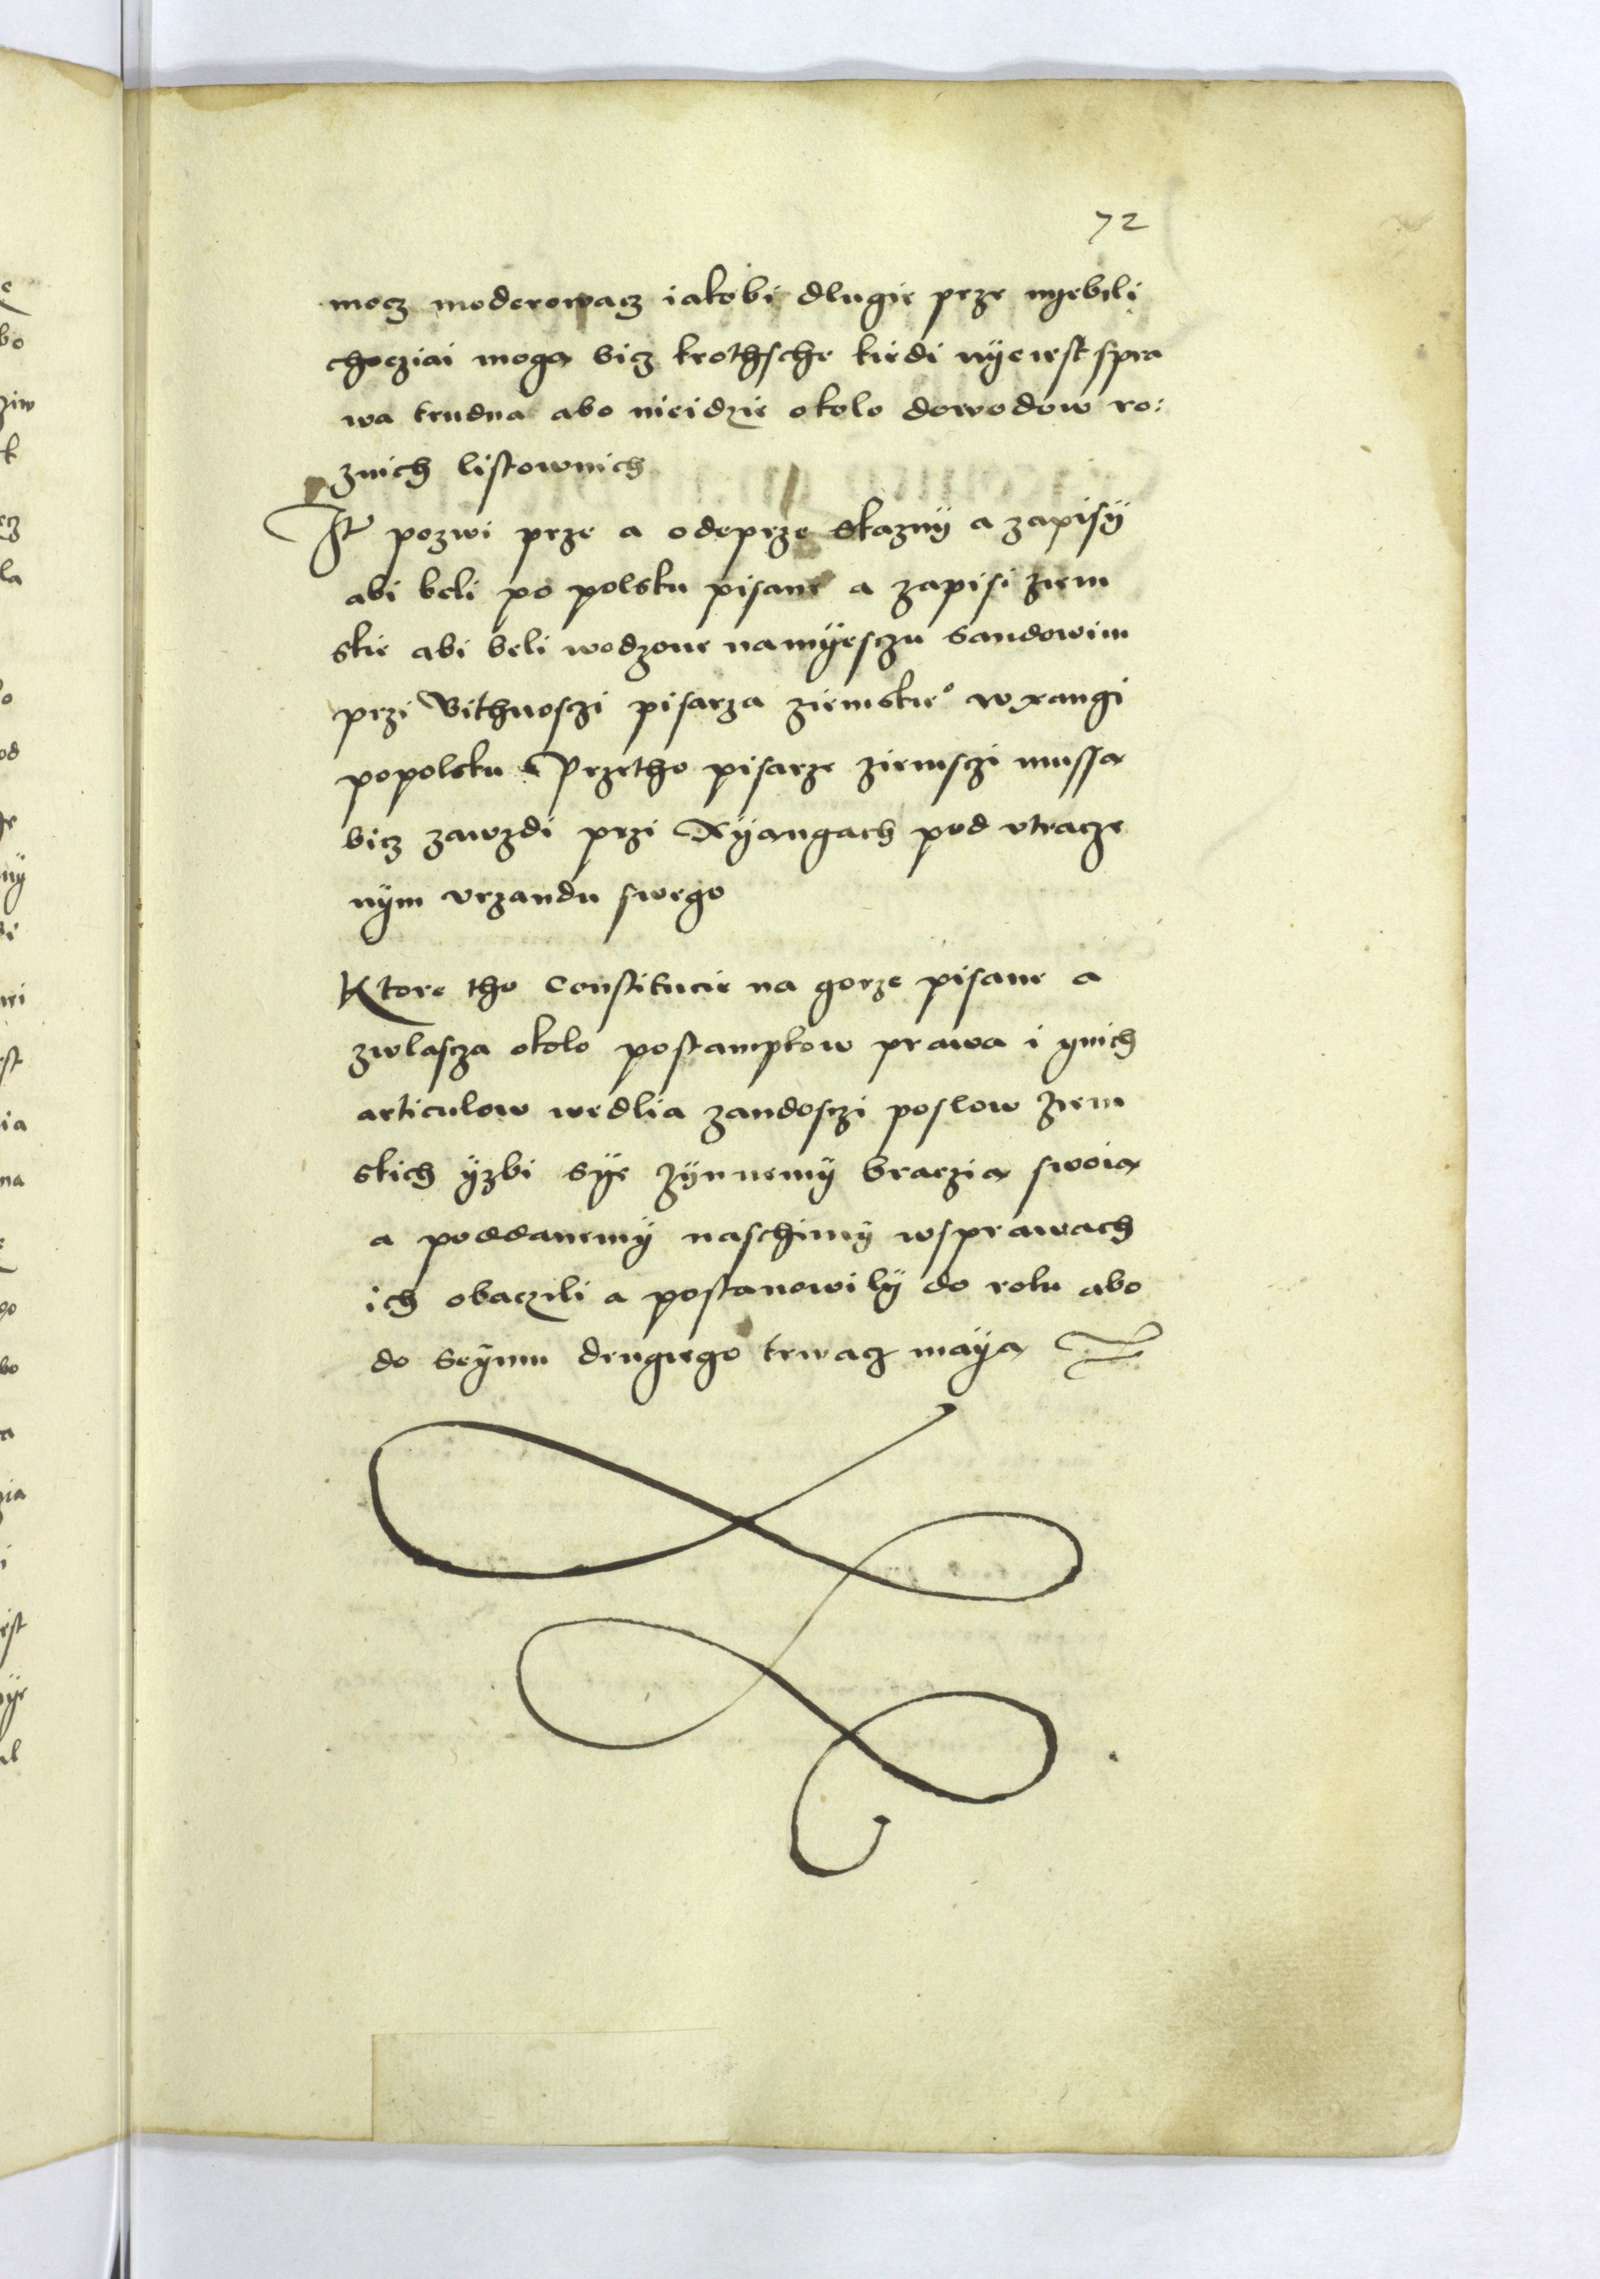 72
mocz moderowacz iakobi dlugie prze nyebeli
chocziai moga bicz krothsche kiedi nye iest spra
wa trudna abo nieidzie okolo dowodow ro:
znich listownich
It pozwi prze a odeprze skazny a zapisy
abi beli po polsku pisane a zapisi ziem
skie abi beli wodzone namyesczu sandowim
przi bithnosczi pisarza ziemskieo w xangi
popolsku Przetho pisarze ziemsczi mussa
bicz zawzdi przi Xyangach pod vtracze
nym vrzandu swego
Ktore tho Constitucie na gorze pisane a
zwlascza okolo postampkow prawa i ynich
articulow wedlia zandosczi poslow ziem
skich yzbi sye zynnemy braczia swoia
a poddanemy naschimy wsprawach
ich obaczili a postanowily do roku abo
do Seymu drugiego trwacz maya